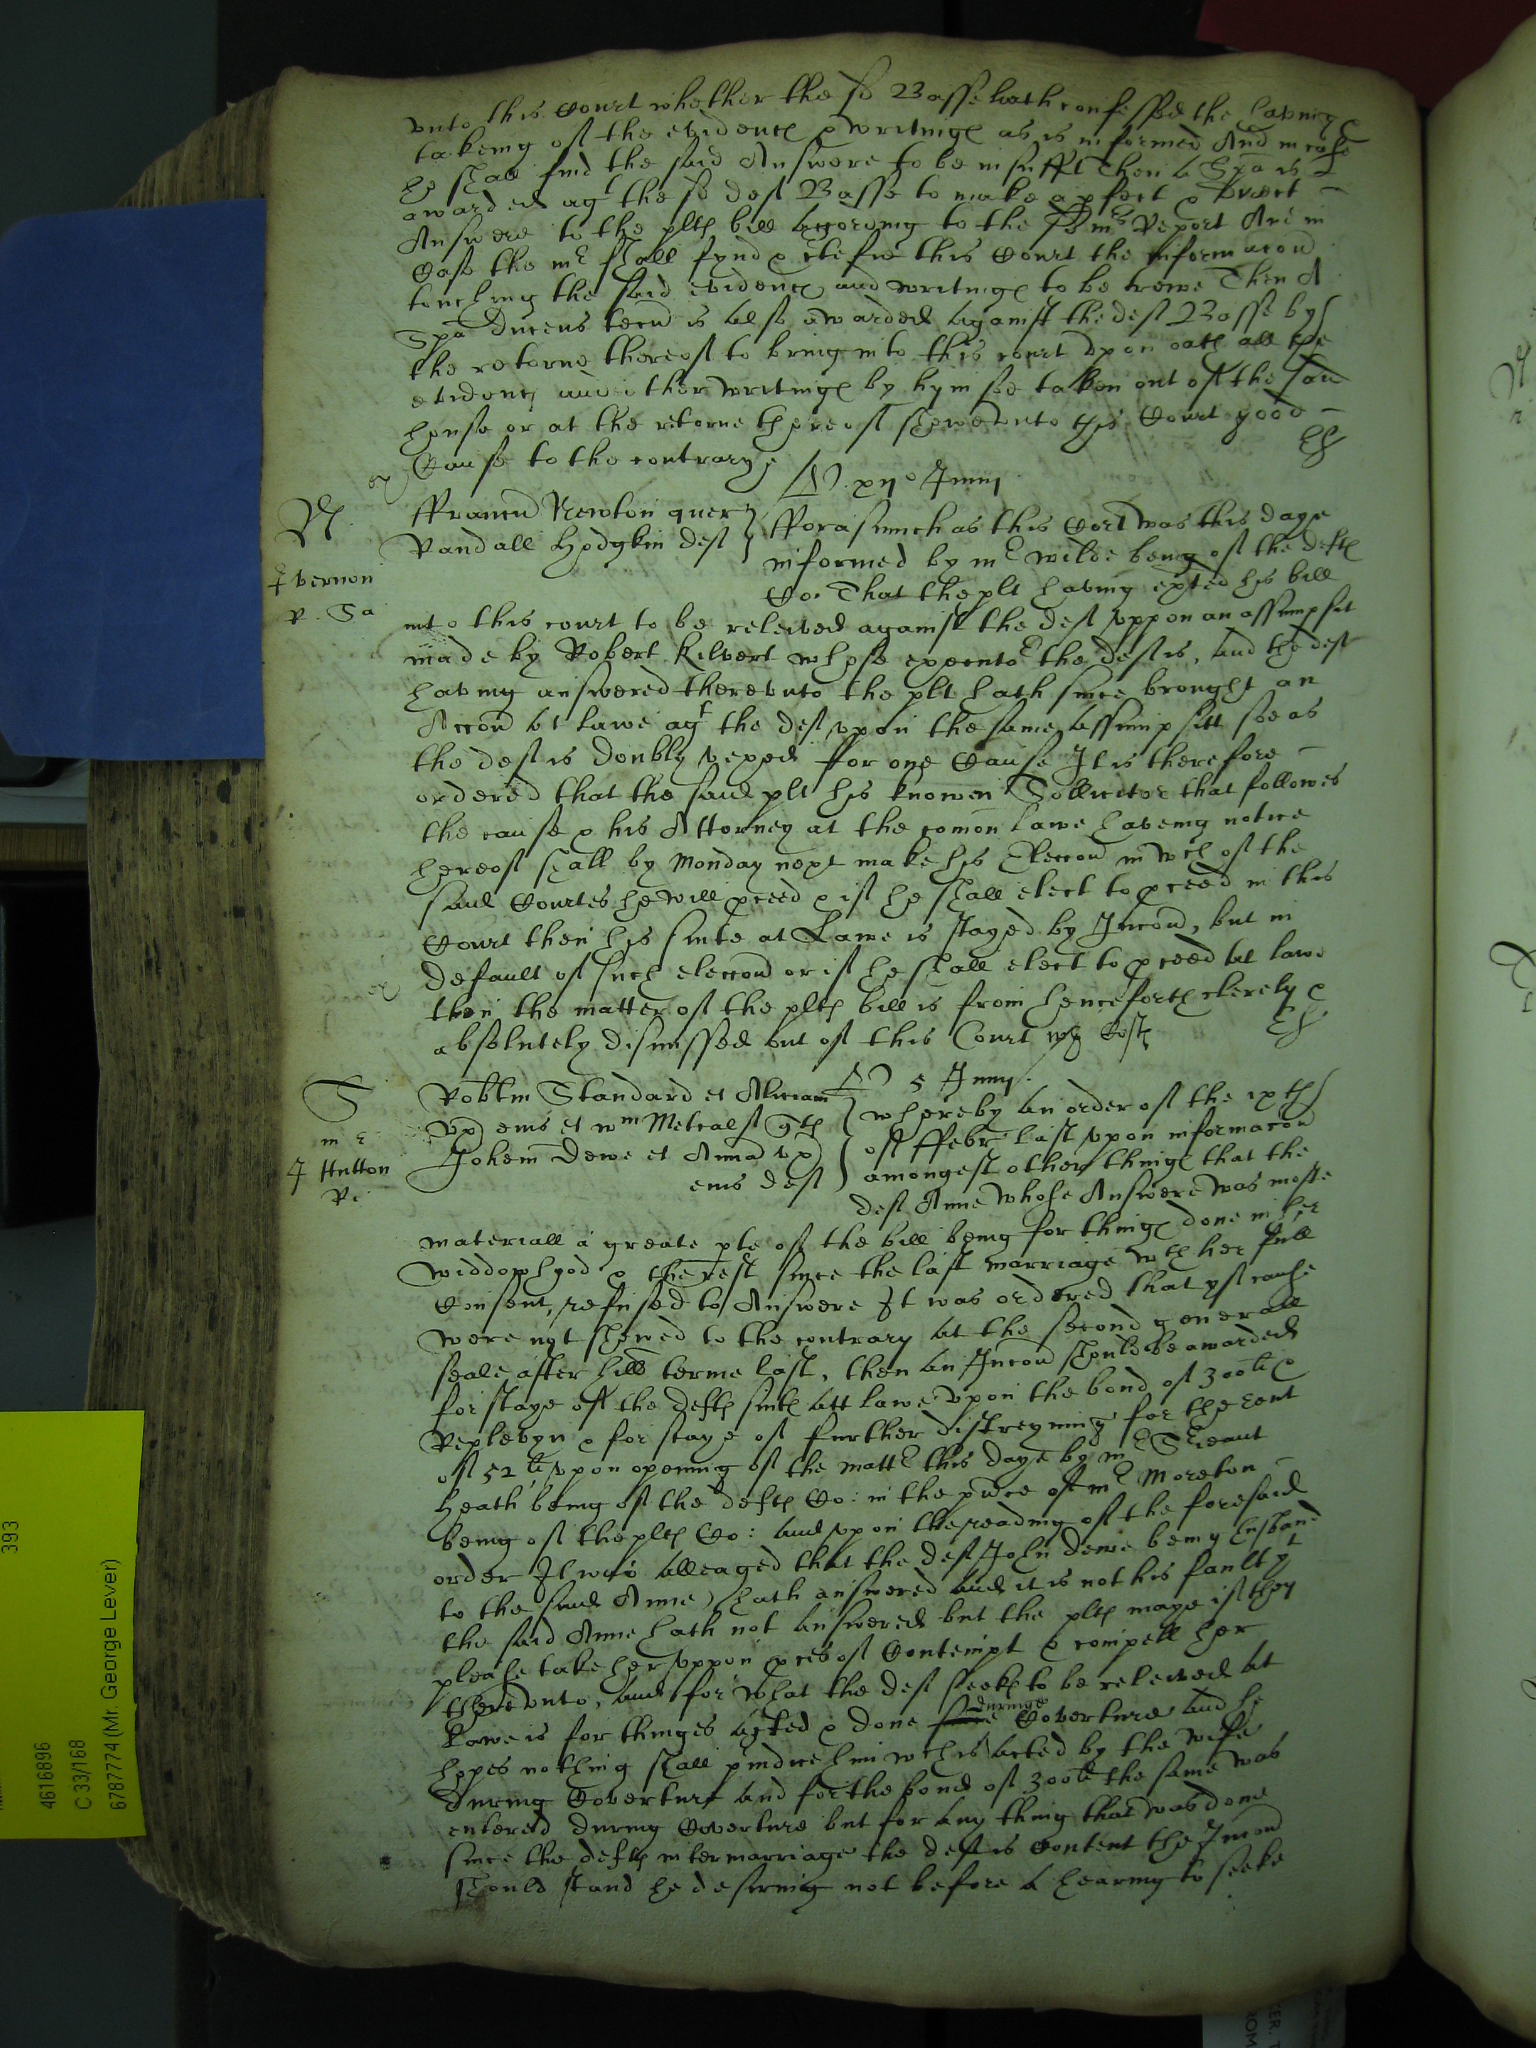 vnto this Court whether the sd Basse hath confessed the having &
takeing of the evidenc & writing as is informed And in case
he shall find the said Answere to be insufft Then a Spa is
awarded agt the sd deft Basse to make a pfect & direct
Answere to the plts bill according to the sd mr Report And in
Case the mr shall fynd & certefie this Court the informacon
touching the said evidenc and writing to be trewe Then A
Spa ducens tecu is also awarded against the deft Basse by
the retorne thereof to bring into this court vpon oath all the
evidenc and other writing by hym soe taken out of the said
house or at the retorne thereof shewe vnto this Court good
Cause to the contrary
ex
N
vernon
R
Junij
ffrancu Newton quer
Randall Hodgkin deft
fforasmuch as this Cort was this daye
informed by mr Wilde being of the defts
Co. That the plt having exhted his bill
into this court to be releived against the deft vppon an assumpsit
made by Robert Kilvert whose executor the deft is, and the deft
having answered therevnto the plt hath since brought an
Accon at lawe agt the deft vpon the same assumpsitt soe as
the deft is doubly vexed for one Cause It is therefore
ordered that the said plt his knowen Sollicitor that followes
the cause & his Attorney at the comon lawe haveing notice
hereof shall by Monday next make his Eleccon in wch of the
said Courtes he will pceed & if he shall elect to pceed in this
Court then his suite at Lawe is stayed by Iniccon, but in
default of such eleccon or if he shall elect to pceed at lawe
then the matter of the plts bill is from henceforth clerely &
absolutely dismissed out of this Court wth Costs
ex
S
Hutton
Ri
5 Junij
Robtm Standard et Aliciam
vx eius et wm Metcalf
Johem Dewe et Anna vx
eius deft
whereby an order of the ixth
of ffebr last vpon informacon
amongest other thing that the
deft Anne whose Answere was moste
materiall a greate pte of the bill being for thing done in her
widdowhood & the rest since the last marriage wth her full
Consent, refused to Answere It was ordered that yf cause
were not shewed to the contrary at the second generall
seale after hill terme last, then an Iniccon should be awarded
for staye of the defts suits att lawe vpon the bond of 300li &
Replevyn & for staye of further distreyning for the rent
of 52li vpon opening of the mattr this daye by mr Srieant
Heath being of the defts Co: in the pnce of mr Moreton
being of the plts Co: and vpon the reading of the foresaid
order It was alleaged that the deft John Dewe being husband
to the said Anne hath answered and it is not his fault yt
the said Anne hath not answered but the plts maye if they
please take her vppon pces of Contempt & compell her
therevnto, and for what the deft seeks to be releived at
Lawe is for thinges acted & done during Coverture and he
hopes nothing shall piudice him wch is acted by the wife
during Coverture and for the bond of 300li the same was
entered during Coverture but for any thing that was done
since the defts intermarriage the deft is Content the Iniccon
should stand he desiring not before a hearing to seeke
393
4616896
C 33/168
6787774 (Mr. George Lever)